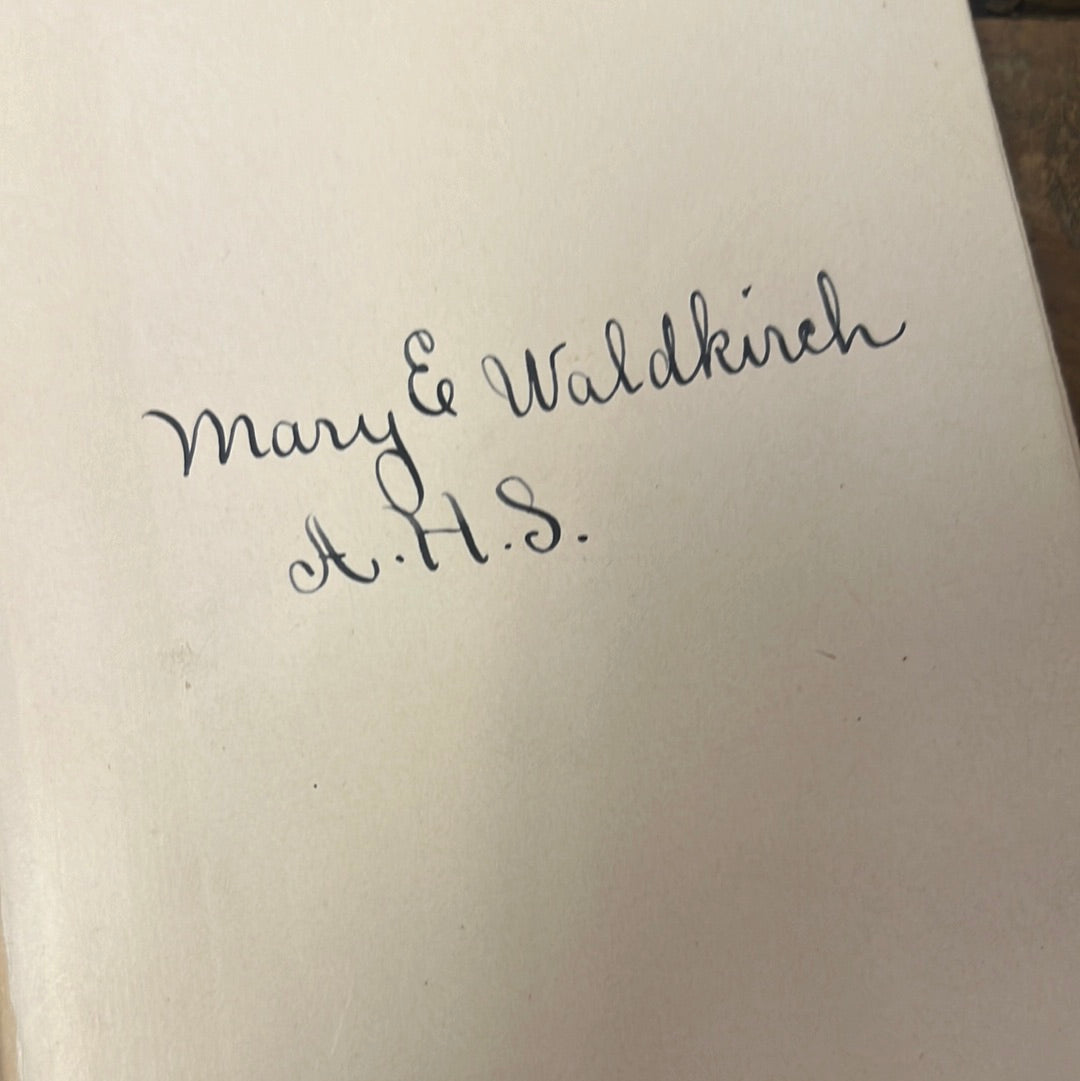 Mary E Waldkirch
A.H.S.